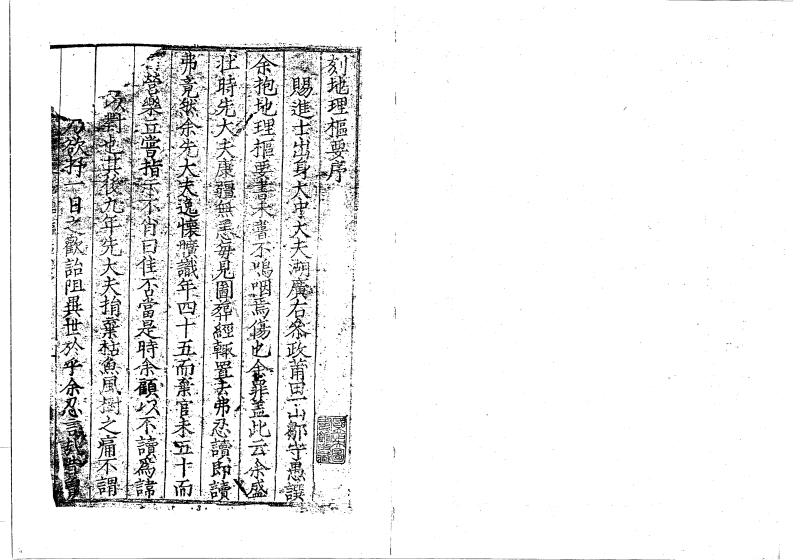 刻地理樞要序
賜進士出身大中大夫湖廣右叅政莆田一山鄒守愚譔
余抱地理樞要書未嘗不鳴咽焉傷也余葬盖此云余盛
壯時先大夫康疆無恙每見圖葬經輙置去弗忍讀即讀
弗竟然余先大夫逸懷曠識年四十五而棄官未五十而
營樂丘嘗指示不肖曰佳否當是時余顧以不讀為諱
對也其後九年先大夫捐棄枯魚風樹之痛不謂
乃欲拚一日之歡詒阻異世於乎余忍言